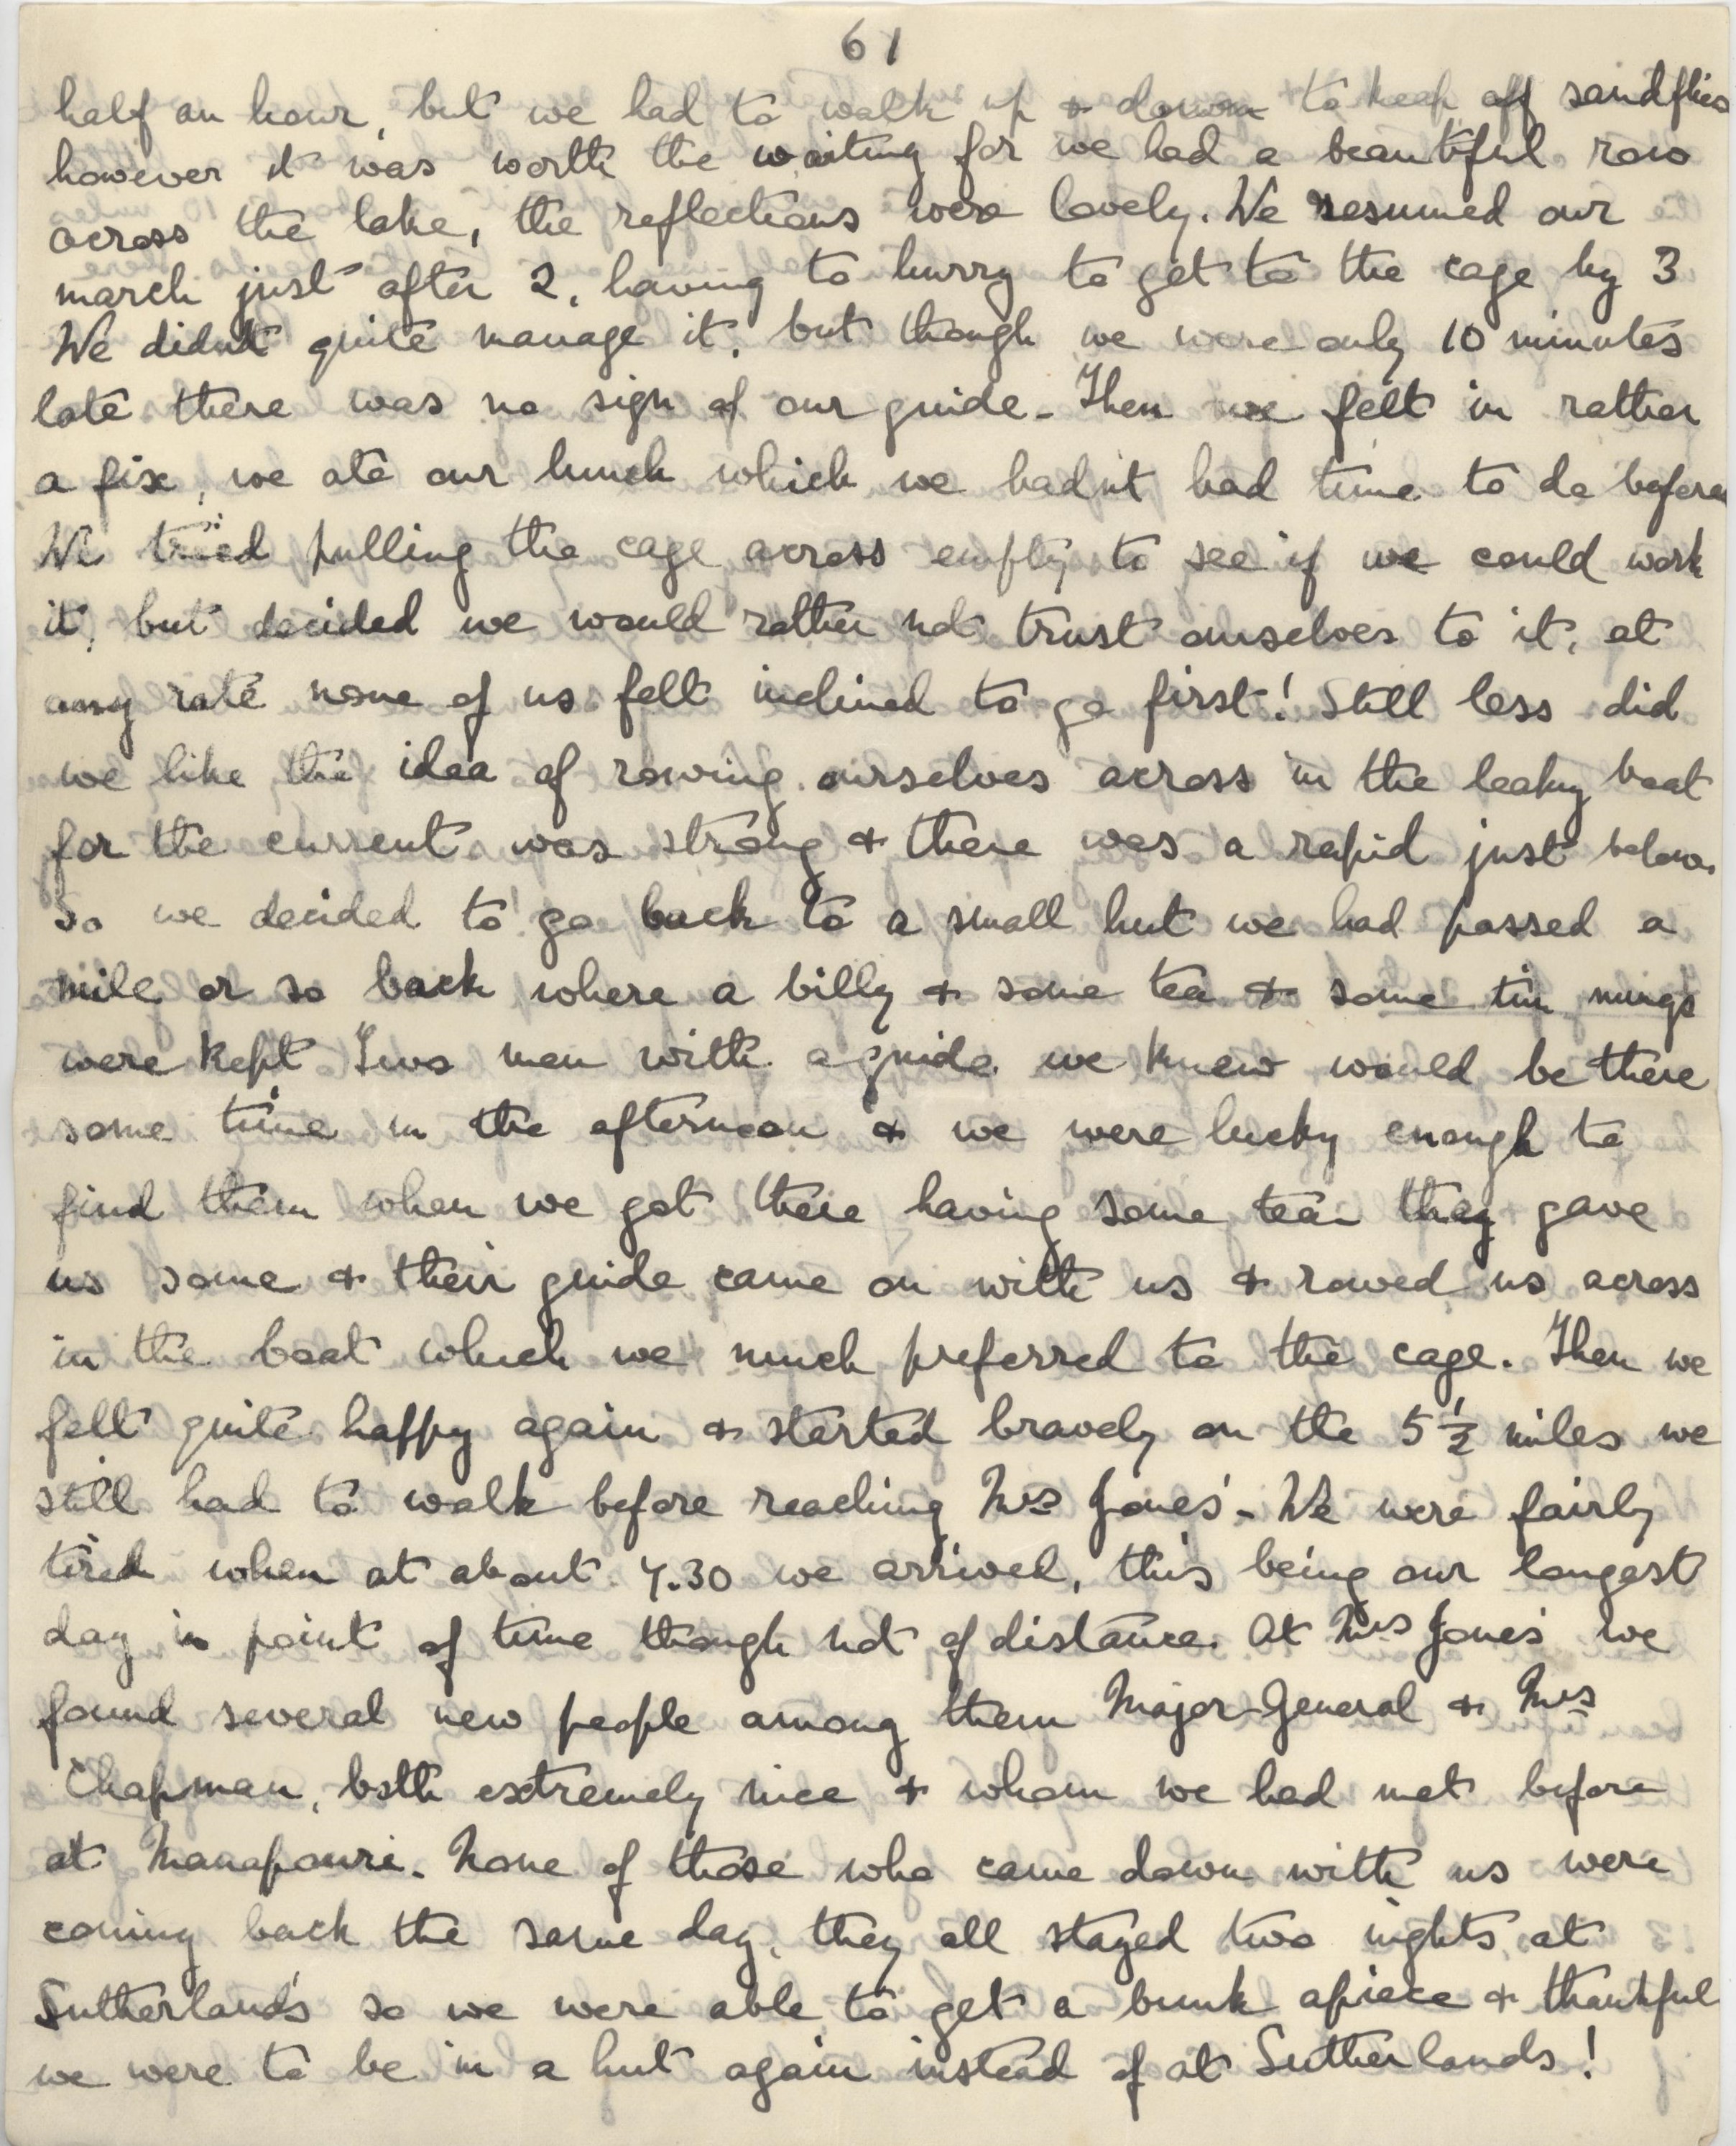 61
half an hour, but we had to walk up & down to keep off sandflies
however it was worth the waiting for we had a beautiful row
across the lake, the reflections were lovely. We resumed our
march just after 2, having to hurry to get to the cage by 3
We didn't quite manage it, but though we were only 10 minutes
late there was no sign of our guide. Then we felt in rather
a fix, we ate our lunch which we hadn't had time to do before
We tried pulling the cage across empty to see if we could work
it, but decided we would rather not trust ourselves to it, at
any rate none of us felt inclined to go first! Still less did
we like the idea of rowing ourselves across in the leaky boat
for the current was strong & there was a rapid just below.
So we decided to go back to a small hut we had passed a
mile or so back where a billy & some tea & some tin mugs
were kept Two men with a guide we knew would be there
some time in the afternoon & we were lucky enough to
find them when we got there having some tea they gave
us some & their guide came on with us & rowed us across
in the boat which we much preferred to the cage. Then we
felt quite happy again & started bravely on the 5½ miles we
still had to walk before reaching Mrs Jones'- We were fairly
tired when at about 7.30 we arrived, this being our longest
day in point of time though not of distance. At Mrs Jones' we
found several new people among them Major-General & Mrs
Chapman, both extremely nice & whom we had met before
at Manapouri. None of those who came down with us were
coming back the same day, they all stayed two nights at
Sutherland's so we were able to get a bunk apiece & thankful
we were to be in a hut again instead of at Sutherlands!